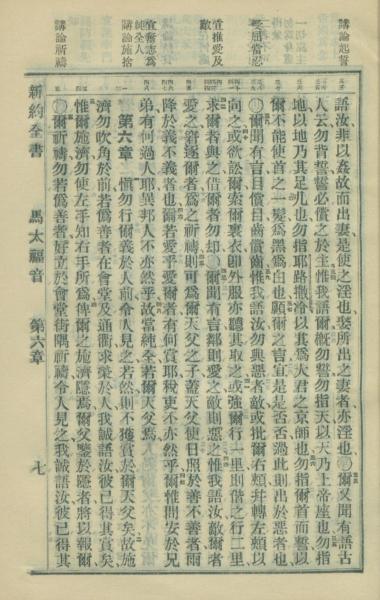 講論起誓
一切處皆
勿為身屬
受屈當忍
宜推愛及
敵
宜奮志為
純全人
講論施捨
講論祈禱
語汝非以姦故而出妻是使之淫也娶所出之妻者亦淫也〇爾又聞有語古
人云勿背誓誓必償之於主惟我語爾概勿誓勿指天以天乃上帝座也勿指
地以地乃其足几也勿指耶路撒冷以其為大君之京師也勿指爾首而誓以
爾不能使首之一髮為黑為白也願爾之言宜是是否否過此則出於惡者也
〇爾聞有言目償目齒償齒惟我語汝勿與惡者敵或批爾右頰并轉左頰以
向之或欲訟爾索爾裏衣卽外服亦聽其取之或強爾行一里則偕之行二里
求爾者與之借爾者勿却〇爾聞有言鄰則愛之敵則惡之惟我語汝敵爾者
愛之窘逐爾者為之祈禱則可為爾天父之子蓋天父使日照於善不善者雨
降於義不義者也爾若愛乎愛爾者有何賞耶稅吏不亦然乎爾惟問安於兄
弟有何過人耶異邦人不亦然乎故當純全若爾天父焉
第六章 愼勿行爾義於人前令人見之若然則不獲賞於爾天父矣故施
濟勿吹角於前若偽善者在會堂及通衢求榮於人我誠語汝彼已得其賞矣
惟爾施濟勿使左手知右手所為俾爾之施濟隱焉爾父鑒於隱者將以報爾
〇爾祈禱勿若偽善者好立於會堂街隅祈禱令人見之我誠語汝彼已得其
新約全書
馬太福音
第六章
七